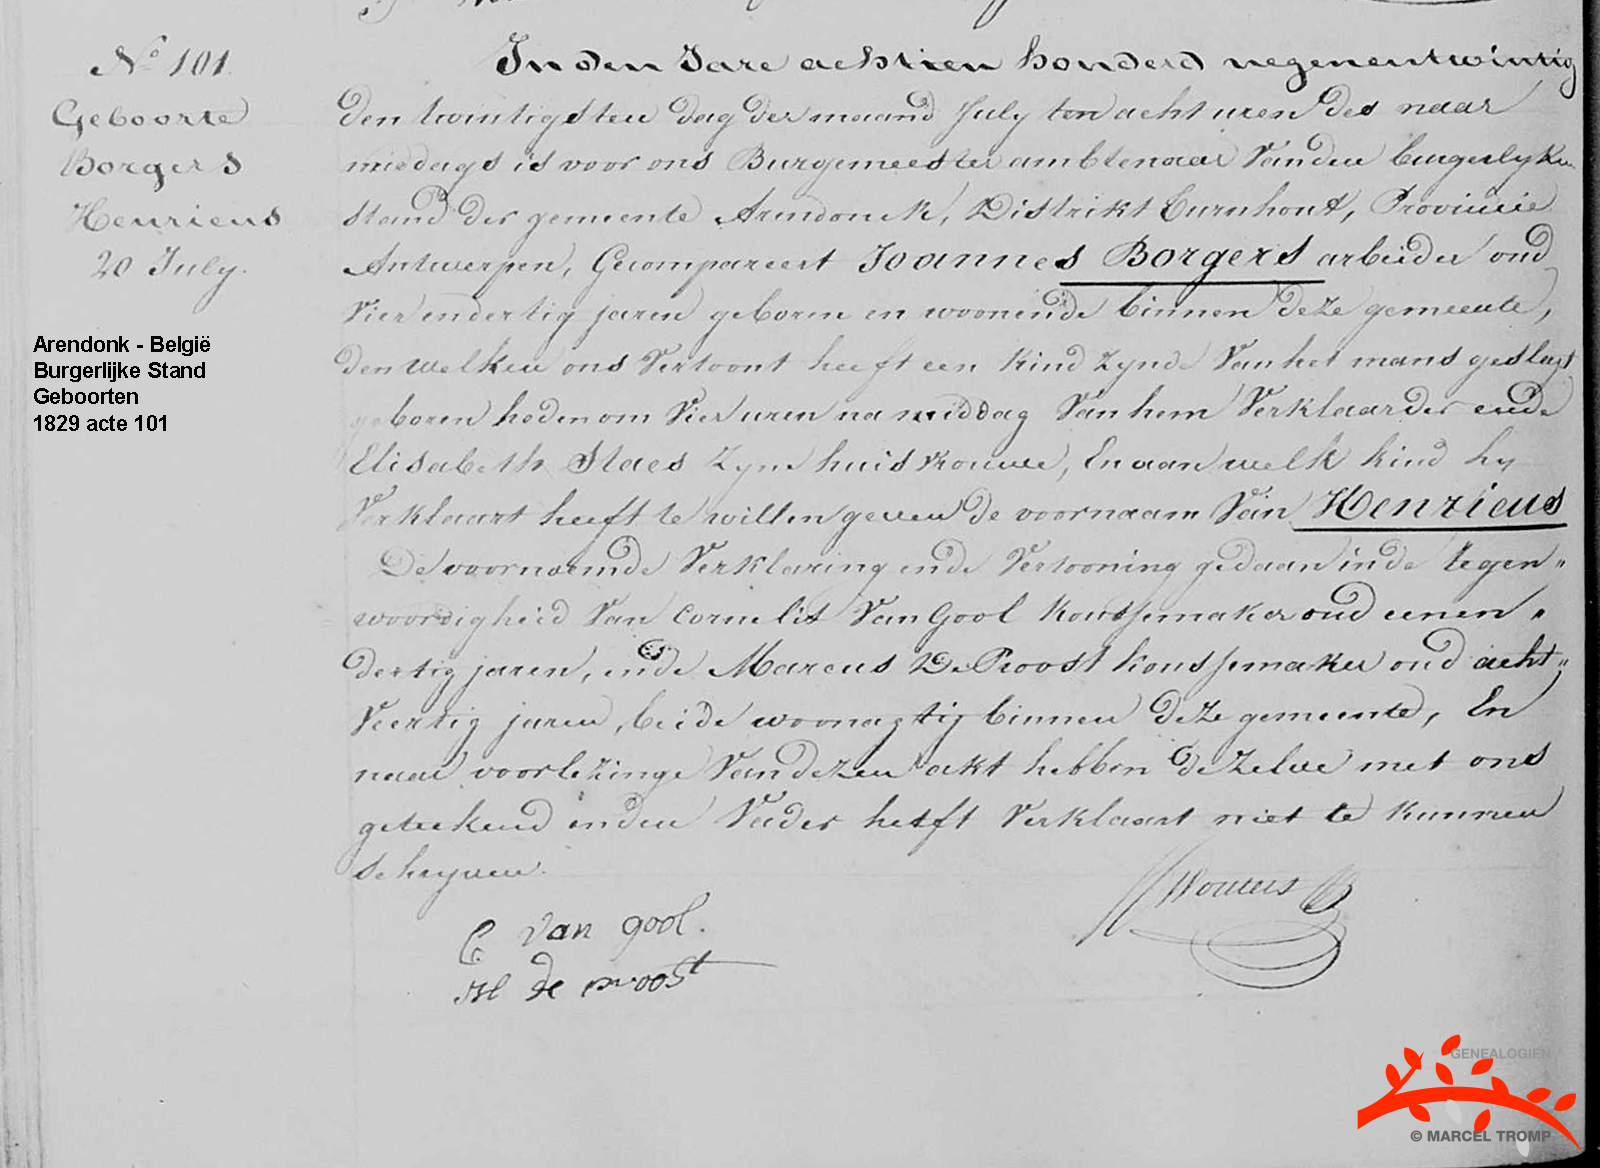 No 101
Geboorte
Borgers
Henricus
20 July.
Arendonk - België
Burgerlijke Stand
Geboorten
1829 acte 101
In den Jare achtien honderd negenentwintig
den twintigsten dag der maand July ten acht uren des naar
middags is voor ons Burgemeester ambtenaar van den burgerlyken
stand der gemeente Arendonck, Distrikt Turnhout, Provincie
Antwerpen, Gecompareert Joannes Borgers arbeider oud
vierendertig jaren geboren en woonende binnen deze gemeente,
den welken ons vertoont heeft een kind zynde van het mans geslagt
geboren heden om vier uren na middag van hem verklaarder ende
Elisabeth Staes zyne huisvrouwe, En aan welk kind hy
verklaart heeft te willen geven de voornaam van Henricus
De voornoemde verklaring ende vertooning gedaan in de tegen„
woordigheid van Cornelis Van Gool koussemaker oud eenen„
dertig jaren, ende Marcus De Proost koussemaker oud acht„
veertig jaren, beide woonagtig binnen deze gemeente, En
naar voorlezinge van dezen akt hebben dezelve met ons
geteekend en den vader heeft verklaart niet te kunnen
schryven.
Wouters
C van gool.
M de proost
GENEALOGIEN
© MARCEL TROMP